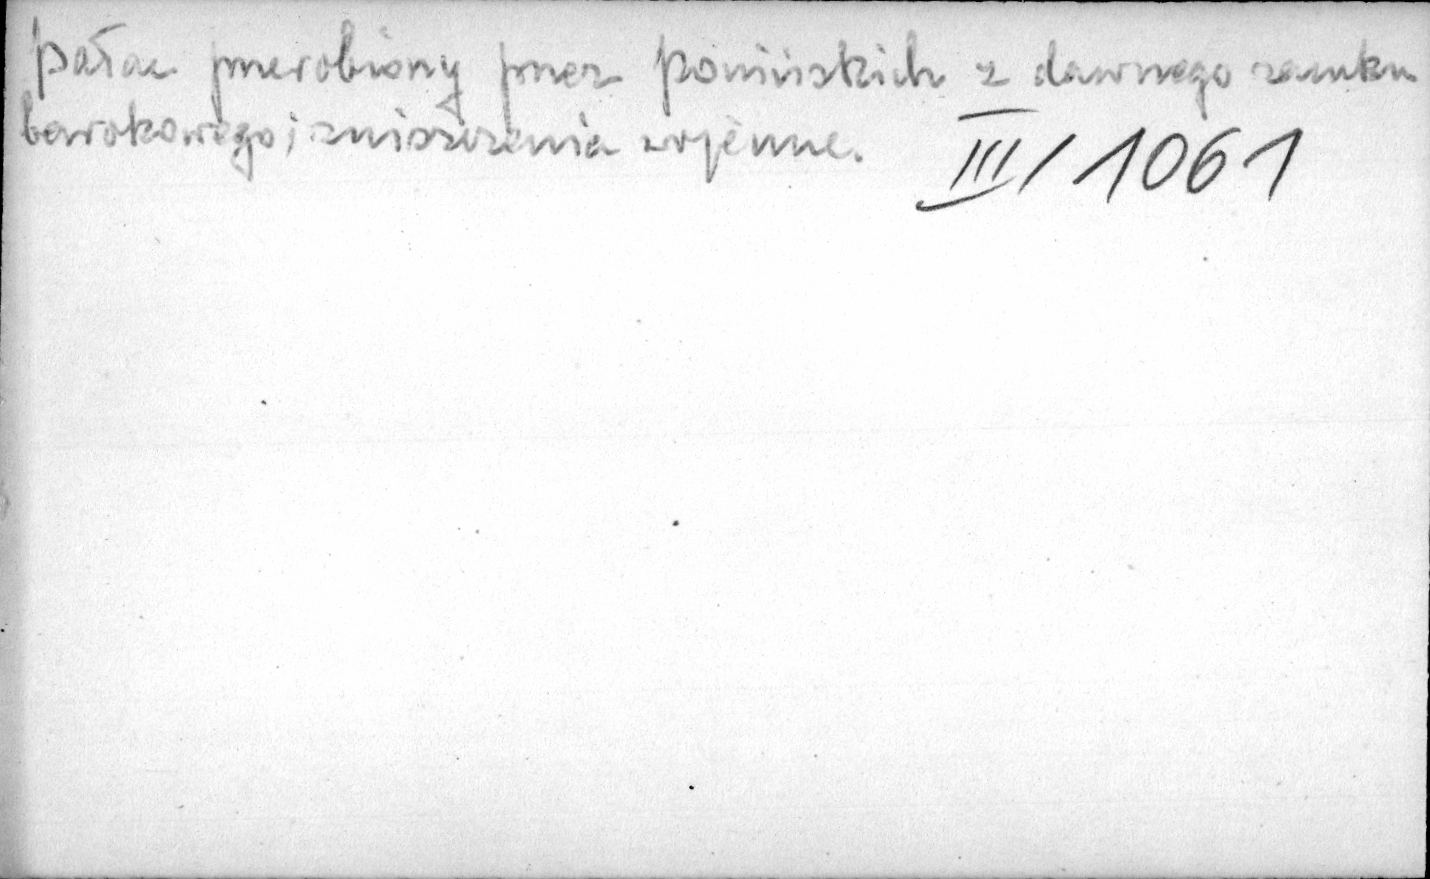 Pałac przerobiony przez Ponińskich z dawnego zamku
barokowego; zniszczenia wojenne. III/1061